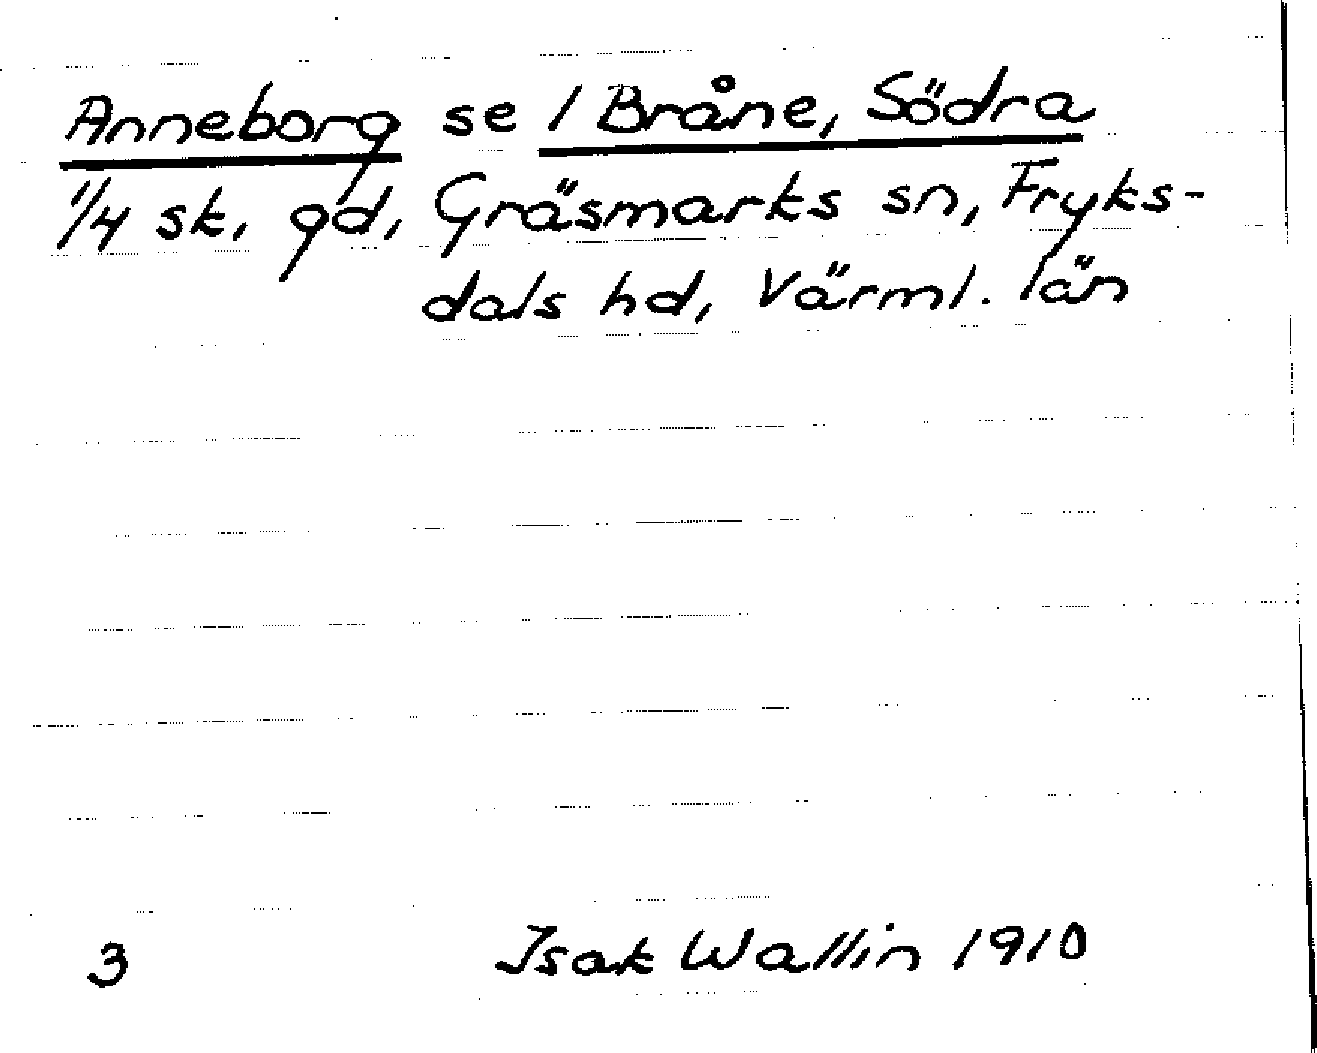 Anneborg se 1 Bråne, Södra
1/4 sk, gd, Gräsmarks sn, Fryks-
dals hd, Värml. län
3 Isak Wallin 1910